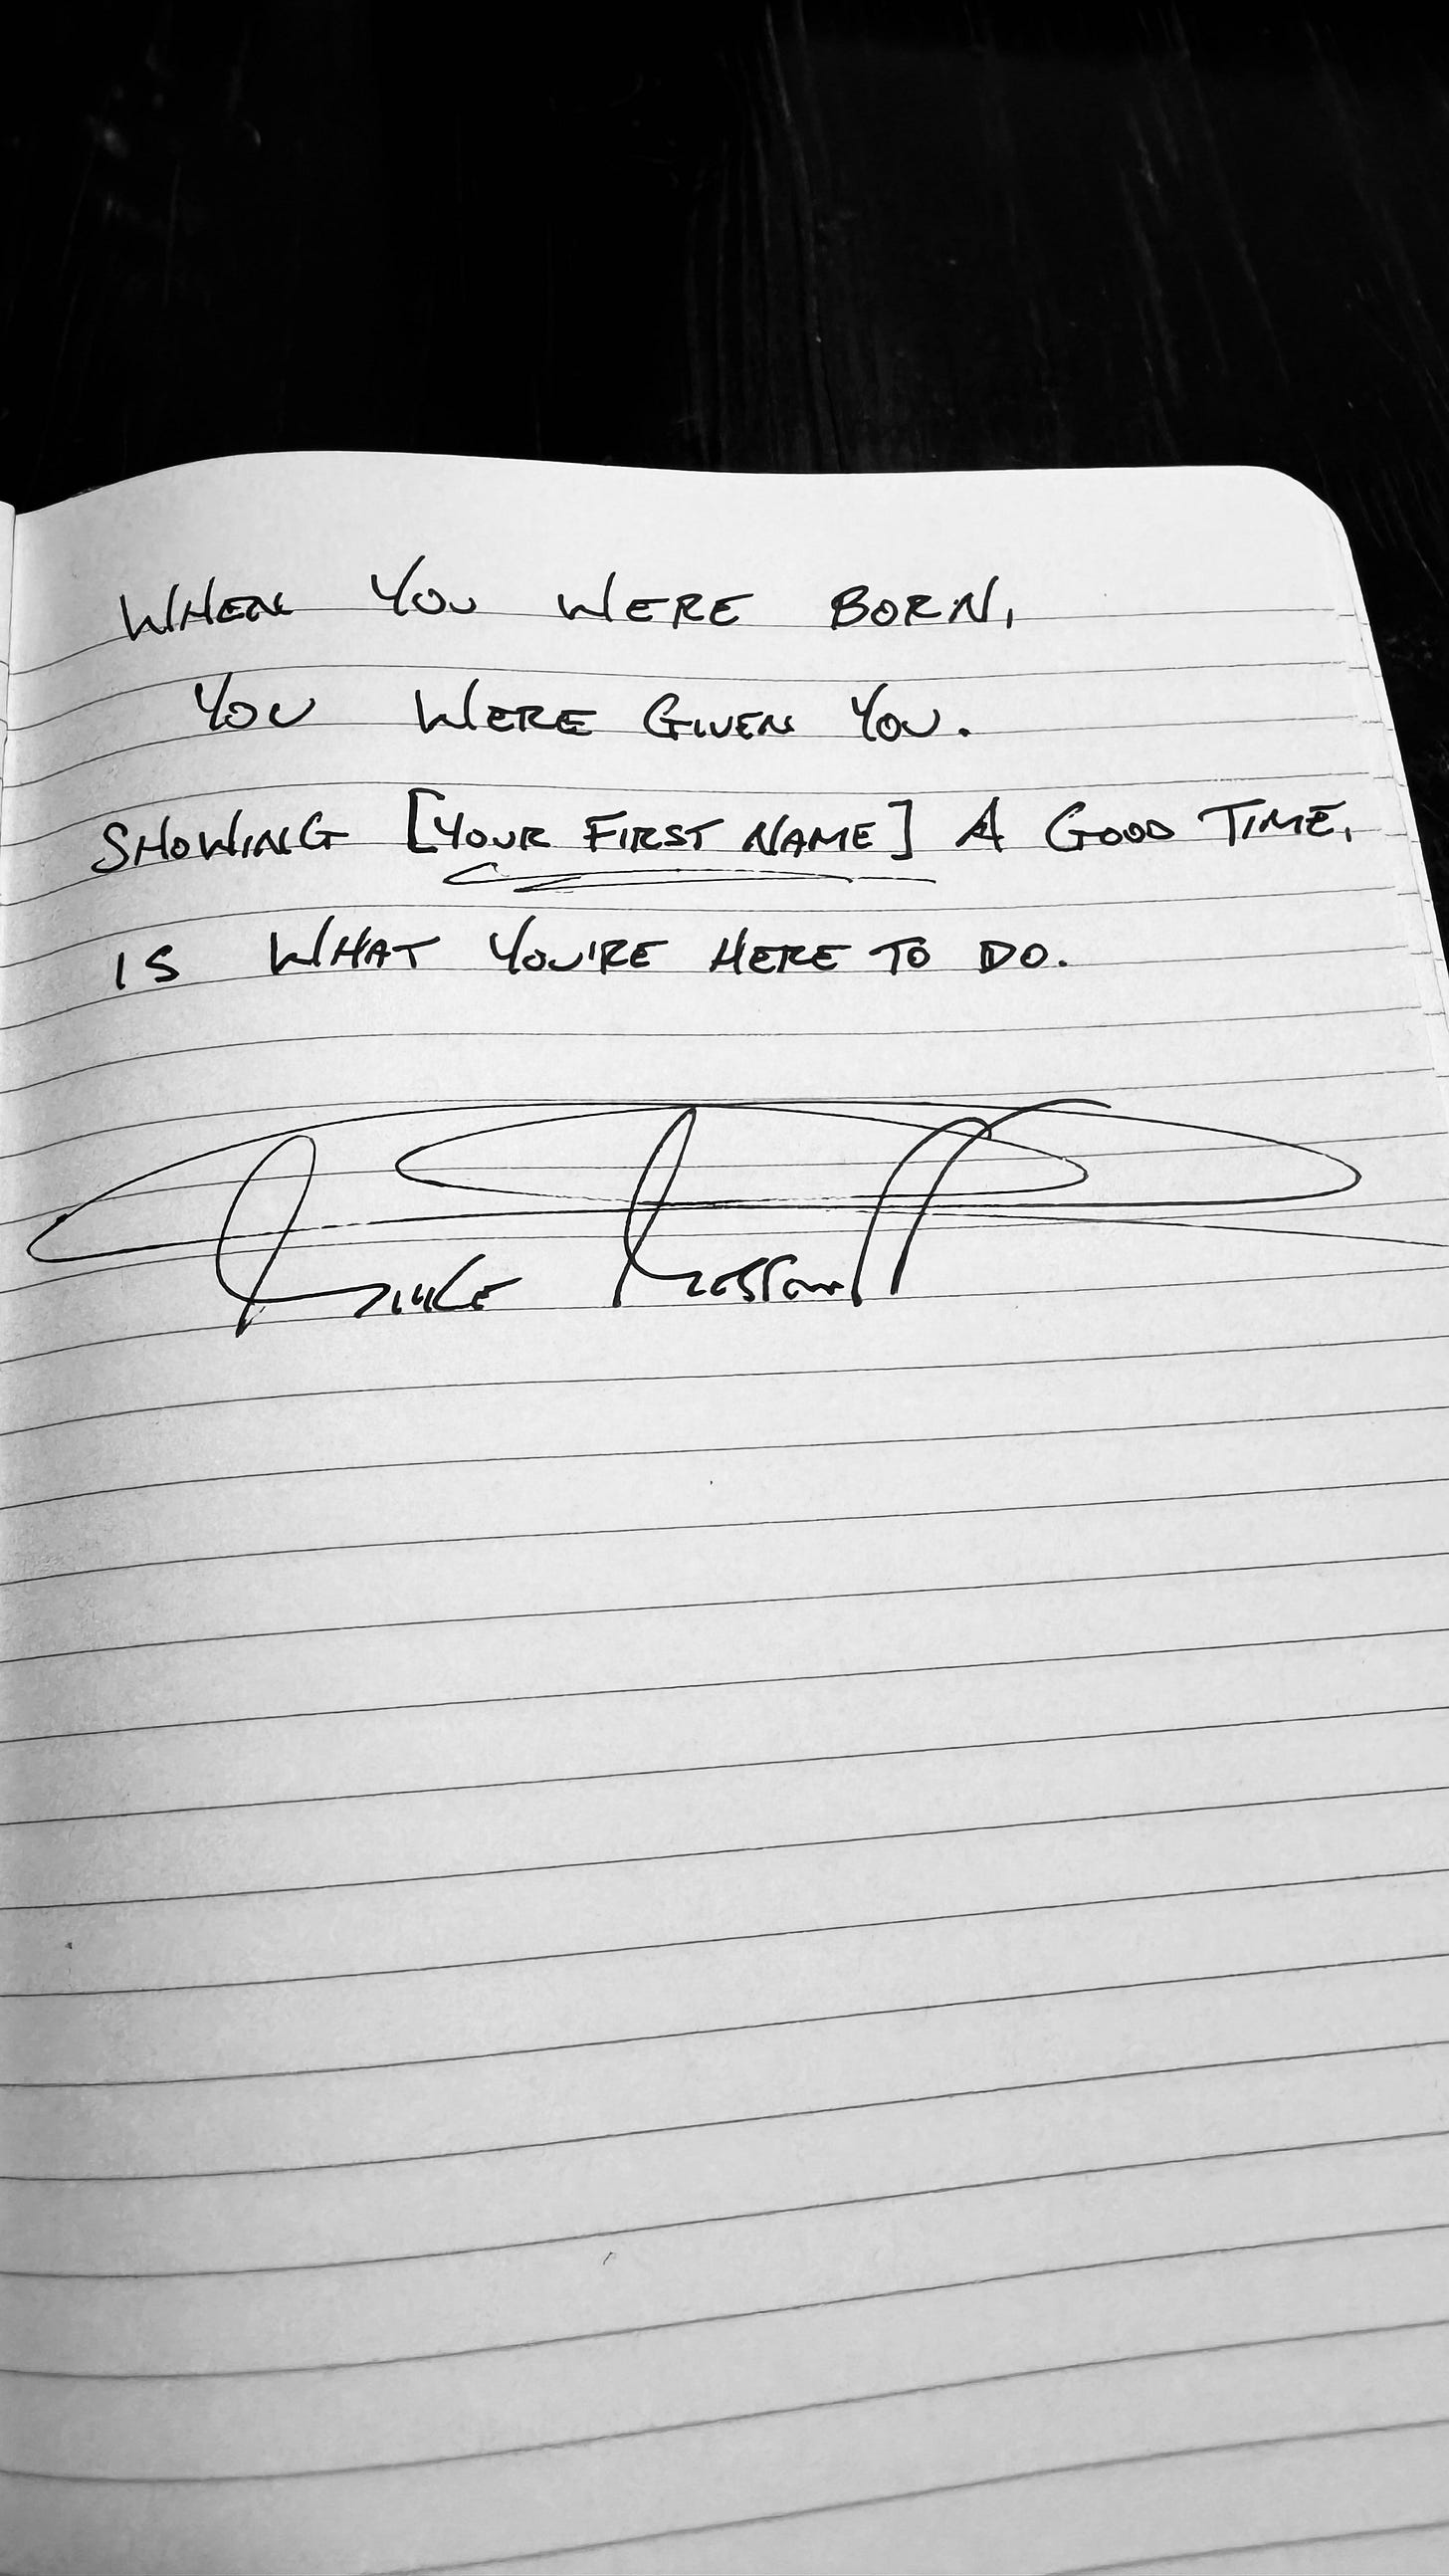 WHEN YOU WERE BORN,
YOU WERE GIVEN YOU.
SHOWING [YOUR FIRST NAME] A GOOD TIME,
IS WHAT YOU'RE HERE TO DO.